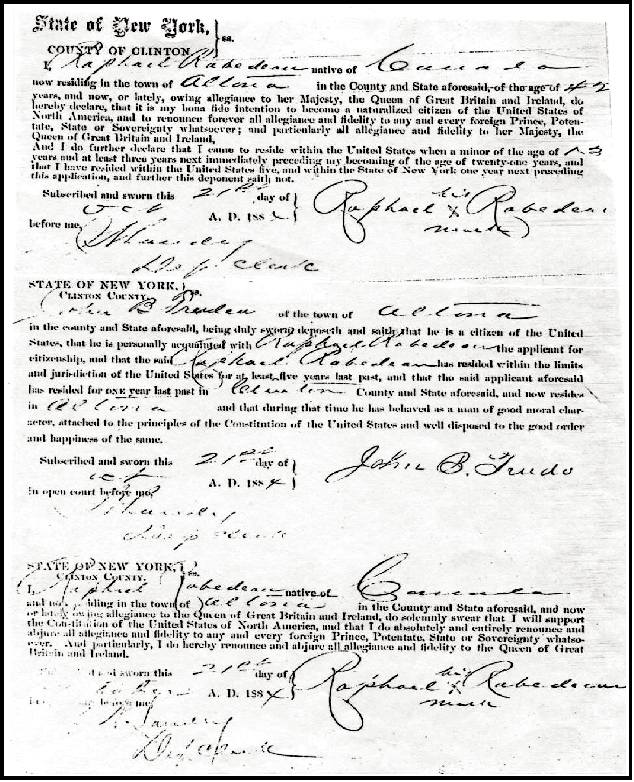 State of New York,
COUNTY OF CLINTON } ss.
I, Raphael Rabedeau native of Canada
now residing in the town of Altona in the County and State aforesaid, of the age of 42
years, and now, or lately, owing allegiance to her Majesty, the Queen of Great Britain and Ireland, do
hereby declare, that it is my bona fide intention to become a naturalized citizen of the United States of
North America, and to renounce forever all allegiance and fidelity to any and every foreign Prince, Poten-
tate, State or Sovereignty whatsoever; and particularly all allegiance and fidelity to her Majesty, the
Queen of Great Britain and Ireland,
And I do further declare that I came to reside within the United States when a minor of the age of 13
years and at least three years next immediately preceding my becoming of the age of twenty-one years, and
that I have resided within the United States five, and within the State of New York one year next preceding
this application, and further this deponent saith not.
Subscribed and sworn this 21st day of
Oct A. D. 1884
Raphael his x mark Rabedeau
before me,
Dep clerk
STATE OF NEW YORK, } ss.
CLINTON COUNTY.
John B Trudeu of the town of Altona
in the county and State aforesaid, being duly sworn deposeth and saith that he is a citizen of the United
States, that he is personally acquainted with Raphael Rabedeau the applicant for
citizenship, and that the said Raphael Rabedeau has resided within the limits
and jurisdiction of the United States for at least five years last past, and that the said applicant aforesaid
has resided for one year last past in Clinton County and State aforesaid, and now resides
in Altona and that during that time he has behaved as a man of good moral char-
acter, attached to the principles of the Constitution of the United States and well disposed to the good order
and happiness of the same.
Subscribed and sworn this 21st day of
Oct A. D. 1884
John B. Trudo
in open court before me,
Dep clerk
STATE OF NEW YORK, } ss.
CLINTON COUNTY.
I, Raphael Rabedeau native of Canada
and now residing in the town of Altona in the County and State aforesaid, and now
or lately owing allegiance to the Queen of Great Britain and Ireland, do solemnly swear that I will support
the Constitution of the United States of North America, and that I do absolutely and entirely renounce and
abjure all allegiance and fidelity to any and every foreign Prince, Potentate, State or Sovereignty whatso-
ever. And particularly, I do hereby renounce and abjure all allegiance and fidelity to the Queen of Great
Britain and Ireland.
Subscribed and sworn this 21st day of
October A. D. 1884
Raphael his x mark Rabedeau
before me,
Dep clerk